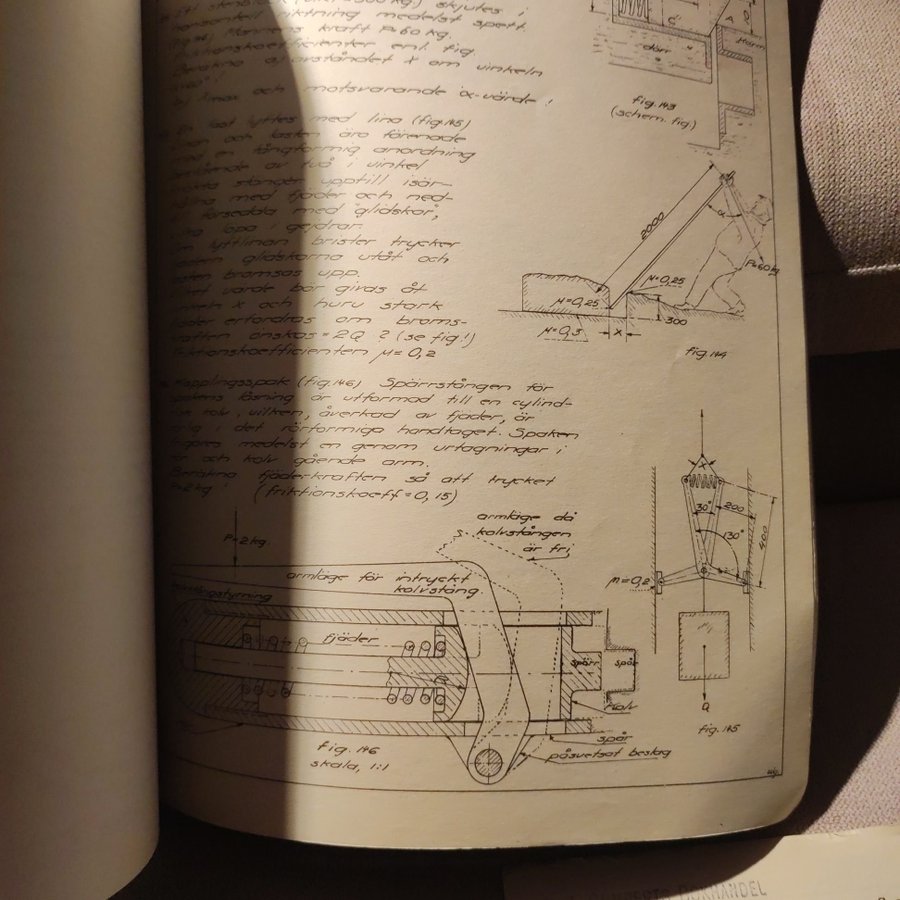 skjutes i
riktning medelst spett
Mannens kraft P=60 kg.
enl. fig
Beräkna avståndet X om vinkeln
b) Xmax och motsvarande α-värde!
En last lyftes med lina (fig.145)
och lasten äro förenade
med en tångformig anordning
bestående av två i vinkel
stänger upptill isär-
med fjäder och ned-
försedda med "glidskor",
löpa i gejdrar.
Om lyftlinan brister trycker
glidskorna utåt och
lasten bromsas upp.
värde bör givas åt
vinkeln X och huru stark
fjäder erfordras om broms-
kraften önskas = 2Q ? (se fig.!)
Friktionskoefficienten μ = 0,2
Kopplingsspak (fig.146) Spärrstången för
spakens låsning är utformad till en cylind-
risk kolv, vilken, åverkad av fjäder, är
i det rörformiga handtaget. Spaken
medelst en genom urtagningar i
rör och kolv gående arm.
Beräkna fjäderkraften så att trycket
P=2 kg! (friktionskoeff = 0,15)
C
A
dörr
fig.143
(schem. fig.)
2000
α
P=60 kg
μ=0,25
μ=0,25
μ=0,3
x
300
fig.144
x
30°
200
130°
400
μ=0,2
Q
fig.145
armläge då
kolvstången
är fri
P=2 kg.
armläge för intryckt
kolvstång
fjäder
spärr
spår
kolv
spår
påsvetsat beslag
fig. 146
skala, 1:1
BOKHANDEL